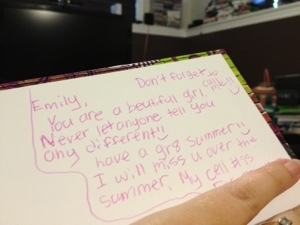 Don't forget to
Emily,
You are a beutiful girl.
Never let anyone tell you
any different!!
have a gr8 summer!!
I will miss u over the
summer. My cell # is